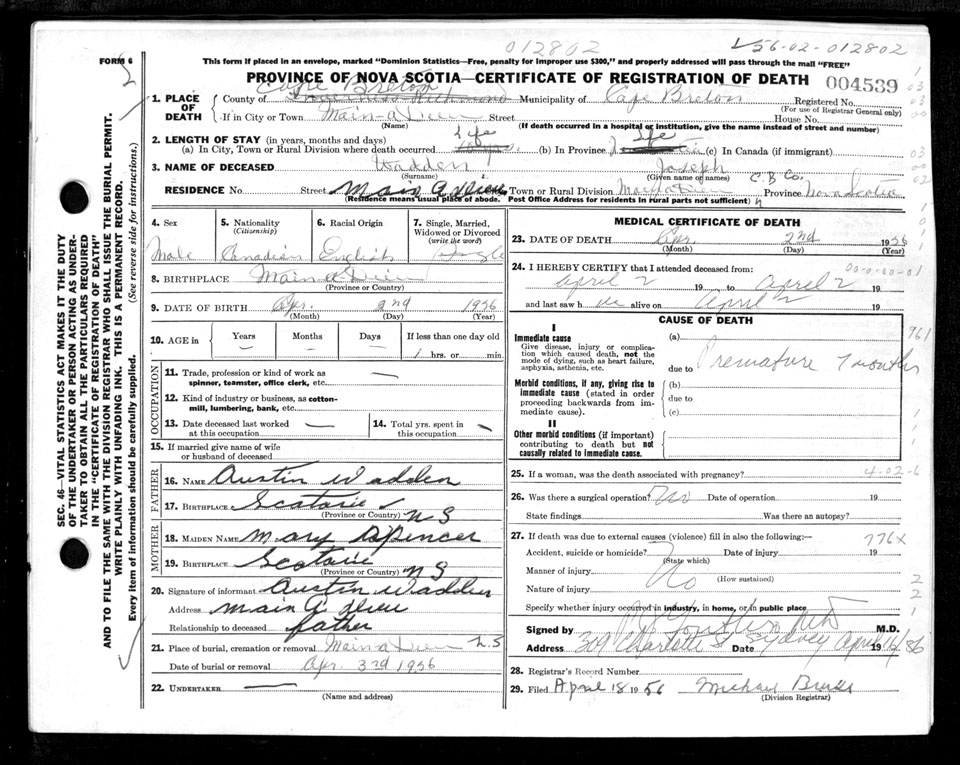 012802
56-02-012802
FORM 6
This form if placed in an envelope, marked "Dominion Statistics—Free, penalty for improper use $300," and properly addressed will pass through the mail "FREE"
PROVINCE OF NOVA SCOTIA—CERTIFICATE OF REGISTRATION OF DEATH
004539
Cape Breton
1. PLACE OF DEATH County of Inverness Richmond Municipality of Cape Breton Registered No.
(For use of Registrar General only)
If in City or Town Main-a-Dieu Street House No.
(Name) (If death occurred in a hospital or institution, give the name instead of street and number)
2. LENGTH OF STAY (in years, months and days)
(a) In City, Town or Rural Division where death occurred Life (b) In Province Life (c) In Canada (if immigrant)
3. NAME OF DECEASED Wadden Joseph
(Surname) (Given name or names) C B Co.
RESIDENCE No. Street Main a Dieu Town or Rural Division Main-a-Dieu Province Nova Scotia
(Residence means usual place of abode. Post Office Address for residents in rural parts not sufficient)
4. Sex
Male
5. Nationality
(Citizenship)
Canadian
6. Racial Origin
English
7. Single, Married, Widowed or Divorced
(write the word)
Single
8. BIRTHPLACE Main-a-Dieu
(Province or Country)
9. DATE OF BIRTH Apr. 2nd 1956
(Month) (Day) (Year)
10. AGE in Years Months Days If less than one day old
— — — 1 hrs. or min.
OCCUPATION
11. Trade, profession or kind of work as spinner, teamster, office clerk, etc. —
12. Kind of industry or business, as cotton-mill, lumbering, bank, etc.
13. Date deceased last worked at this occupation —
14. Total yrs. spent in this occupation —
15. If married give name of wife or husband of deceased
FATHER
16. NAME Austin Wadden
17. BIRTHPLACE Scatarie N S
(Province or Country)
MOTHER
18. MAIDEN NAME Mary Spencer
19. BIRTHPLACE Scatarie N S
(Province or Country)
20. Signature of informant Austin Wadden
Address Main A Dieu
Relationship to deceased father
21. Place of burial, cremation or removal Main-a-Dieu N.S
Date of burial or removal Apr. 3rd 1956
22. UNDERTAKER —
(Name and address)
MEDICAL CERTIFICATE OF DEATH
23. DATE OF DEATH Apr. 2nd 1956
(Month) (Day) (Year)
24. I HEREBY CERTIFY that I attended deceased from:
April 2 19 to April 2 19
and last saw h alive on April 2 19
CAUSE OF DEATH
I
Immediate cause
Give disease, injury or complication which caused death, not the mode of dying, such as heart failure, asphyxia, asthenia, etc.
(a)
due to Premature 7 months
Morbid conditions, if any, giving rise to immediate cause (stated in order proceeding backwards from immediate cause).
(b)
due to
(c)
II
Other morbid conditions (if important) contributing to death but not causally related to immediate cause.
25. If a woman, was the death associated with pregnancy? 4-02-6
26. Was there a surgical operation? No Date of operation 19
State findings Was there an autopsy?
27. If death was due to external causes (violence) fill in also the following:— 776X
Accident, suicide or homicide? Date of injury 19
(State which)
Manner of injury No
(How sustained)
Nature of injury
Specify whether injury occurred in industry, in home, or in public place
Signed by M.D.
Address 309 Charlotte St Sydney Date April
28. Registrar's Record Number
29. Filed April 18 1956 Michael Burke
(Division Registrar)
SEC. 46—VITAL STATISTICS ACT MAKES IT THE DUTY OF THE UNDERTAKER OR PERSON ACTING AS UNDERTAKER TO OBTAIN ALL THE PARTICULARS REQUIRED IN THE "CERTIFICATE OF REGISTRATION OF DEATH" AND TO FILE THE SAME WITH THE DIVISION REGISTRAR WHO SHALL ISSUE THE BURIAL PERMIT.
WRITE PLAINLY WITH UNFADING INK. THIS IS A PERMANENT RECORD.
Every item of information should be carefully supplied. (See reverse side for instructions.)